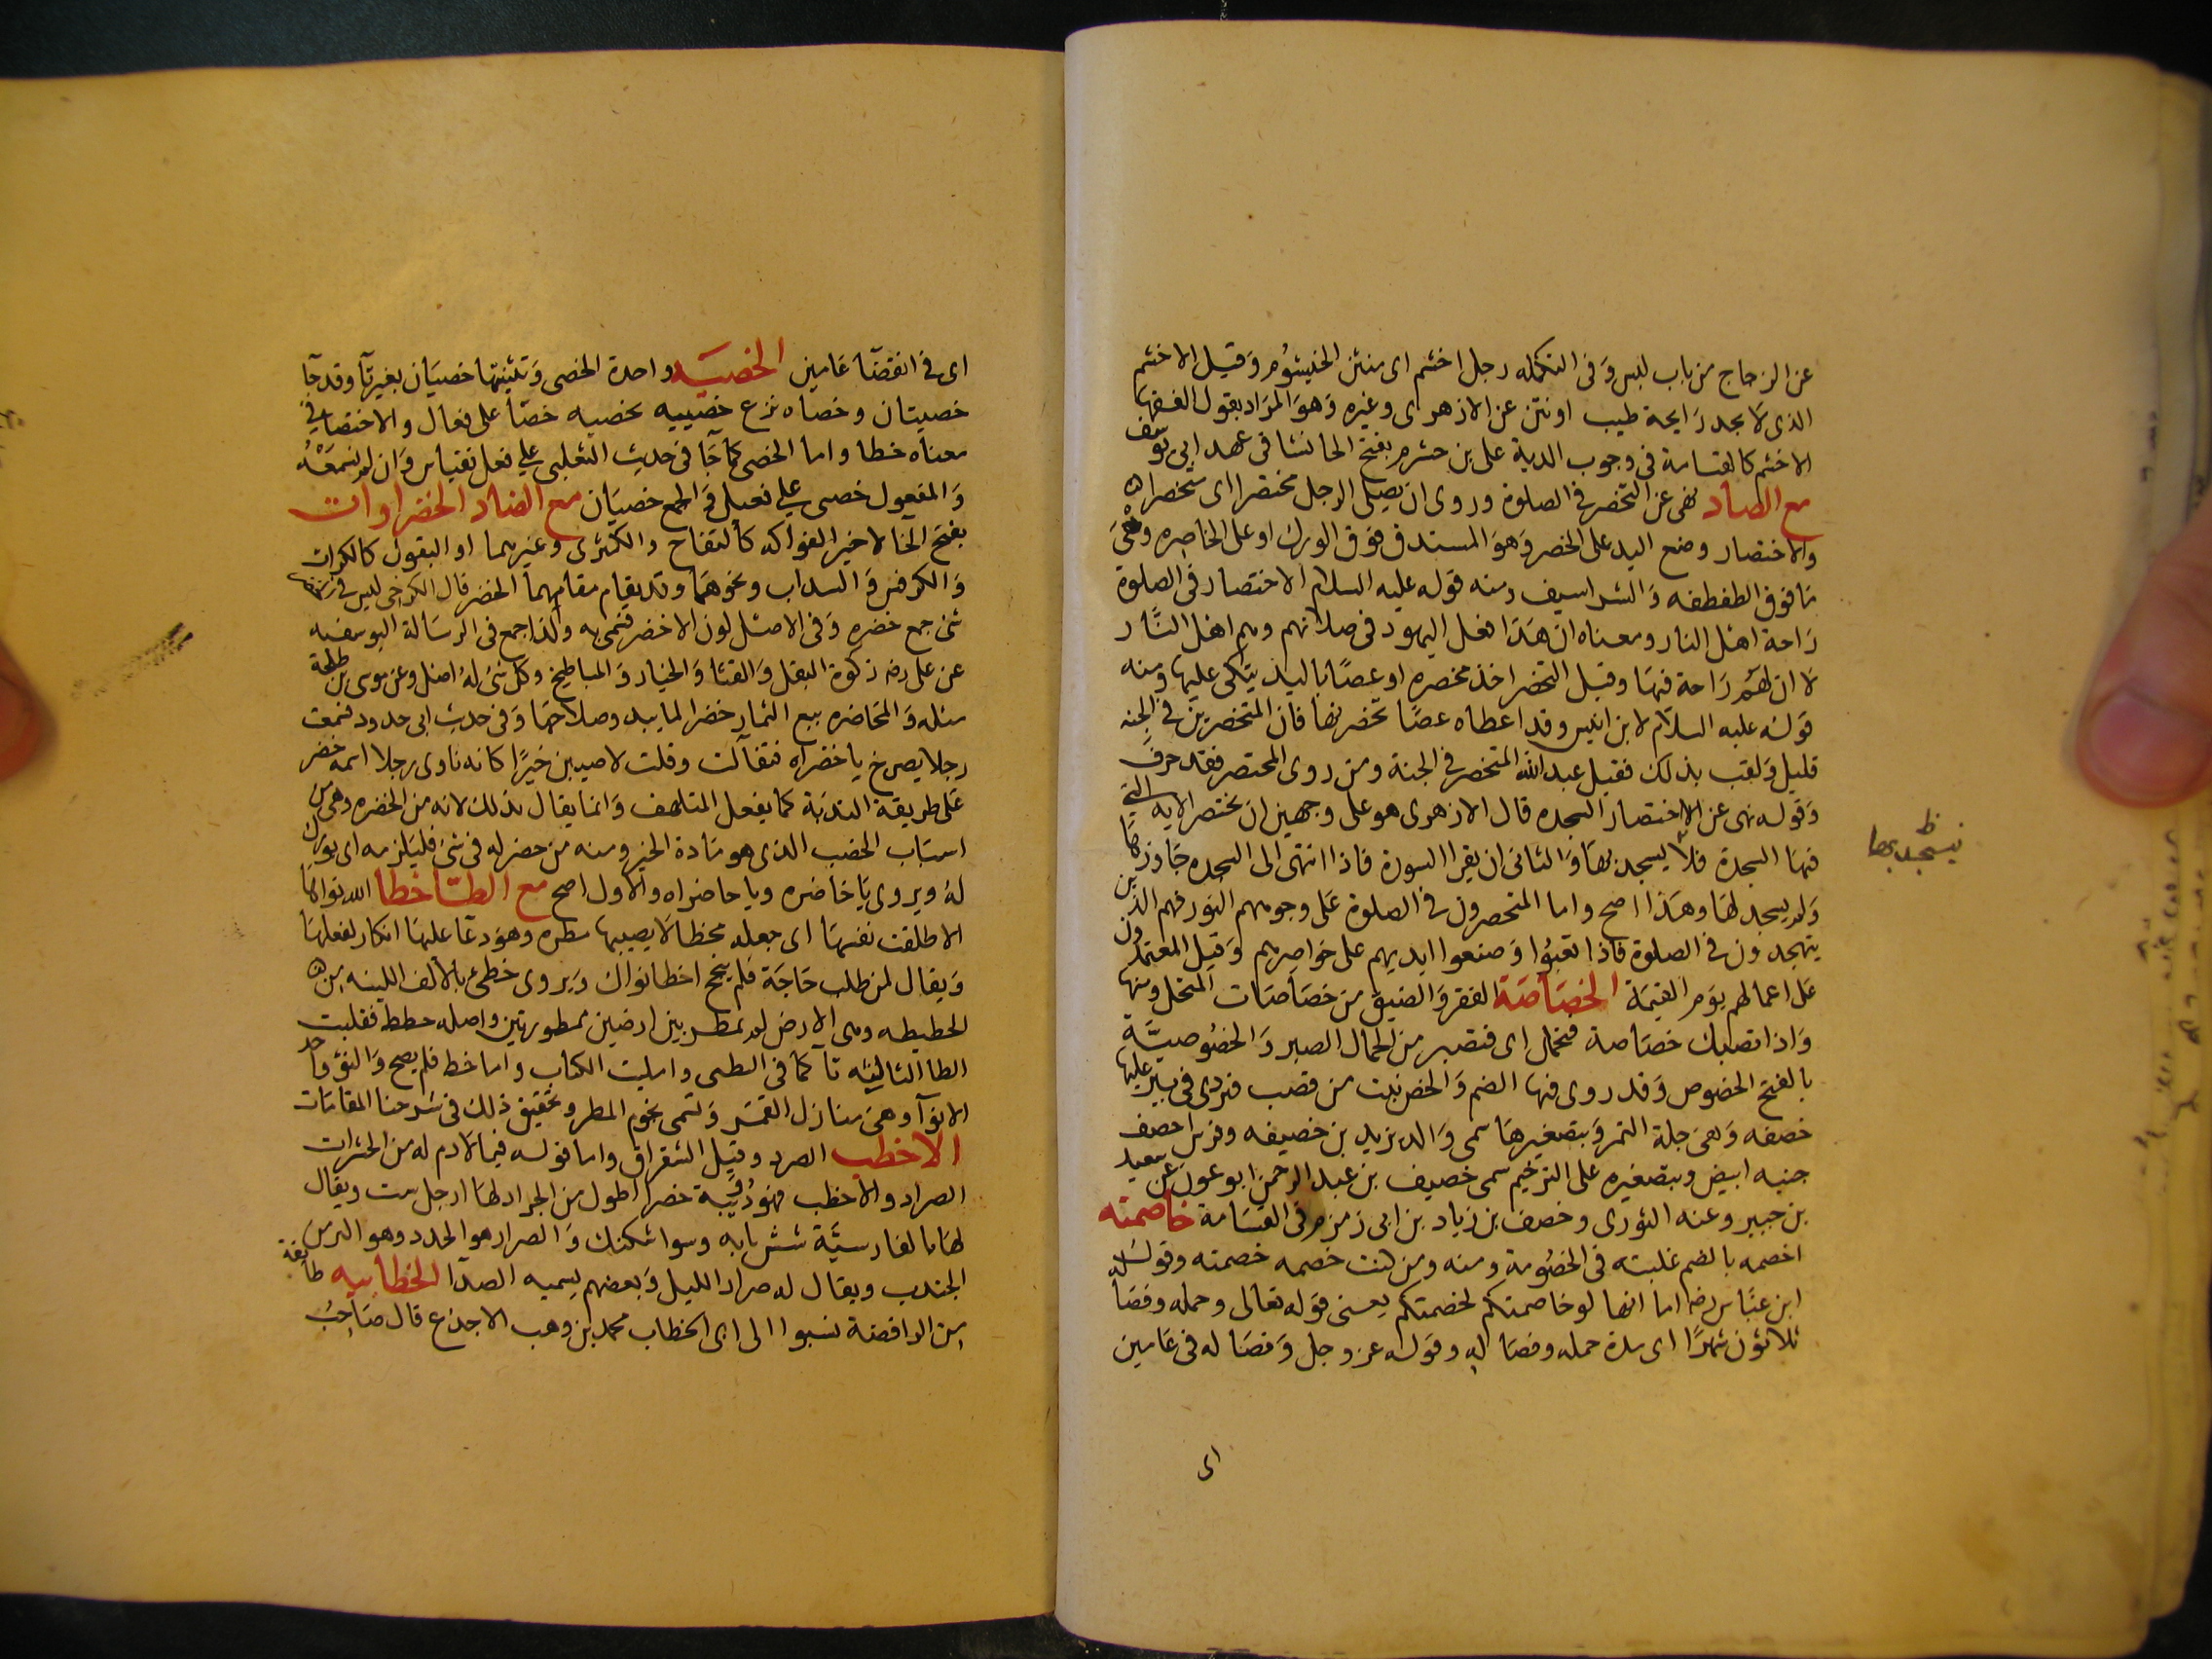 عن الزجاج من باب لبس وَفى التكمله رجل اخشم اى منتن الخيشُوم وَقيل الاخشم
الذى لا يجد رَايحة طيب او نتن عن الازهرى وغيره وَهوَ المرَاد بقول الفقها
الاخشم كالقسامة فى وجوب الدية على بن خشرم بفتح الخا نشا فى عهد ابى يوسف
مع الصاد نهى عن التخصر فى الصلوة وروى ان يصلى الرجل مختصرا اى متخصرا
والاختصار وضع اليد على الخصر وَهوَ المستدق فوق الورك او على الخاصره وهى
مَا فوق الطفطفه وَالشراسيف ومنه قوله عليه السلام الاختصار فى الصلوة
رَاحة اهل النار ومعناه ان هَذا فعل اليهود فى صلاتهم وهم اهل النَّار
لا ان لهُم رَاحة فيهَا وقيل التخصر اخذ مخصره او عصًا باليد يتكى عليها ومنه
قوَله عليه السلام لابن انيس وقد اعطاه عصًا تخصر بهَا فان المتخصرين فى الجنه
قليل وَلقب بذلك فقيل عبد الله المتخصر فى الجنة ومن روى المختصر فقد حرف
وَقوله نهى عن الاختصار السجده قال الازهرى هو على وجهين ان يختصر الاية التى
فيهَا السجدة فلا يسجد بهَا وَالثانى ان يقرا السورة فاذا انتهى الى السجده جَاوزها
فيسجد بها
وَلم يسجد لهَا وهَذا اصح واما المتخصرون فى الصلوة عَلى وجوههم النور فهم الذين
يتهجدون فى الصلوة فاذا تعبُوا وَضعوا ايديهم على خوَاصرهم وَقيل المعتمدون
عَلى اعمالهم يوَم القيمَة الخصَاصَة الفقر وَالضيق من خصَاصَات المنخل ومنها
وَاذا تصبك خصَاصة فتجمل اى فتصبر من الجمال الصبر وَالخصُوصيَّة
بالفتح الخصوص وَقد روى فيها الضم وَالخص بيت من قصب فتردى فى بير عليها
خصفه وَهى جلة التمر وَبتصغيرهَا سمى وَالد يزيد بن خصيفه وفرس اخصف
جنبه ابيض وبتصغيره على الترخيم سمى خصيف بن عبد الرحمن ابو عون عن سعيد
بن جبير وعنه الثورى وخصف بن زياد بن ابى زمزم فى القسَامة خاصمته
اخصمه بالضم غلبته فى الخصُومة ومنه ومن كنت خصمه خصمته وقولُ
ابن عبَّاس رضه اما انها لو خاصمتكم لخصمتكم يعنى قوَله تعالى وحمله وفصَاله
ثلاثوُن شهرًا اى مدة حمله وفصَاله وقوَله عز وجل وَفصَاله فى عَامين
اى
اى فى انقضَا عَامين الخصيَه واحدة الخصى وَتثنيتها خصيَان بغير تآ وقد جَآ
خصيتان وخصاه نزع خصييه يخصيه خصَا على فعال والاختصا فى
معناه خطا واما الخصى كما جَا فى حديث الشعبى على فعل فقياس وَان لم نسمعْهُ
وَالمفعول خصى على فعيل وَالجمع خصيَان مع الضاد الخضراوات
بفتح الخا لا غير الفواكه كالتفاح والكمثرى وغيرهما او البقول كالكراث
وَالكرفس وَالسداب ونحوهمَا وقد يقام مقامهما الخضر قال الكرخى ليس فى الخضر
شى جمع خضره وَفى الاصل لون الاخضر فسمى به ولذا جمع فى الرسَالة اليوسفيه
عن على رضه زكوة البقل وَالقثا وَالخيار وَالمباطيخ وكل شى لهُ اصل وعن موسى بن طلحة
مثله وَالمخاضره بيع الثمار خضرا لما يبد وصلاحهَا وَفى حديث ابى حدرد فسمعت
رجلا يصرخ يا خضراه فتفآلت وقلت لاصيبن خيرًا كانه نادى رجلا اسمه خضر
عَلى طريقة الندبَة كما يفعل المتلهف وَانما يقال بذلك لانه من الخضره وهى من
اسبَاب الخصب الذى هو مَادة الخير ومنه من خضر له فى شى فليَلزمه اى بورك
لهُ ويروى يَا خاضره ويا حاضراه وَالاول اصح مع الطَّا خطا الله نوَاهَا
الا طلقت نفسهَا اى جعله مخطا لا يصيبها مطره وهوَ دعَا عليهَا انكار لفعلهَا
وَيقال لمن طلب حَاجَة فلم ينجح اخطا نوَاك وَيروى خطى بالالف اللينه من
الخطيطه وهى الارض لم تمطر بين ارضين ممطورتين واصله خطط فقلبت
الطا الثالثه تآ كما فى التظنى وامليت الكتاب واما خط فلم يصح وَالنوُ واحد
الانوَآ وهى منازل القمَر وَتسمى نجوم المطر وتحقيق ذلك فى شرحنا المقامَات
الاخطب الصرد وقيل الشقراق واما قوله فيما لا دم له من الحشرات
الصرار والاخطب فهوَ دُوَيِبة خضرا اطول من الجراد لهَا ارجل ست ويقال
لهَا بالفارسيَّة شش بايه وسواشكنك وَالصرار هو الجدجد وهو اكبر من
الجندب ويقال له صرار الليل وَبعضهم يسميه الصدَا الخطابيه طائفة
من الرافضة نسبوا الى ابى الخطاب محمد بن وهب الاجدع قال صَاحبُ